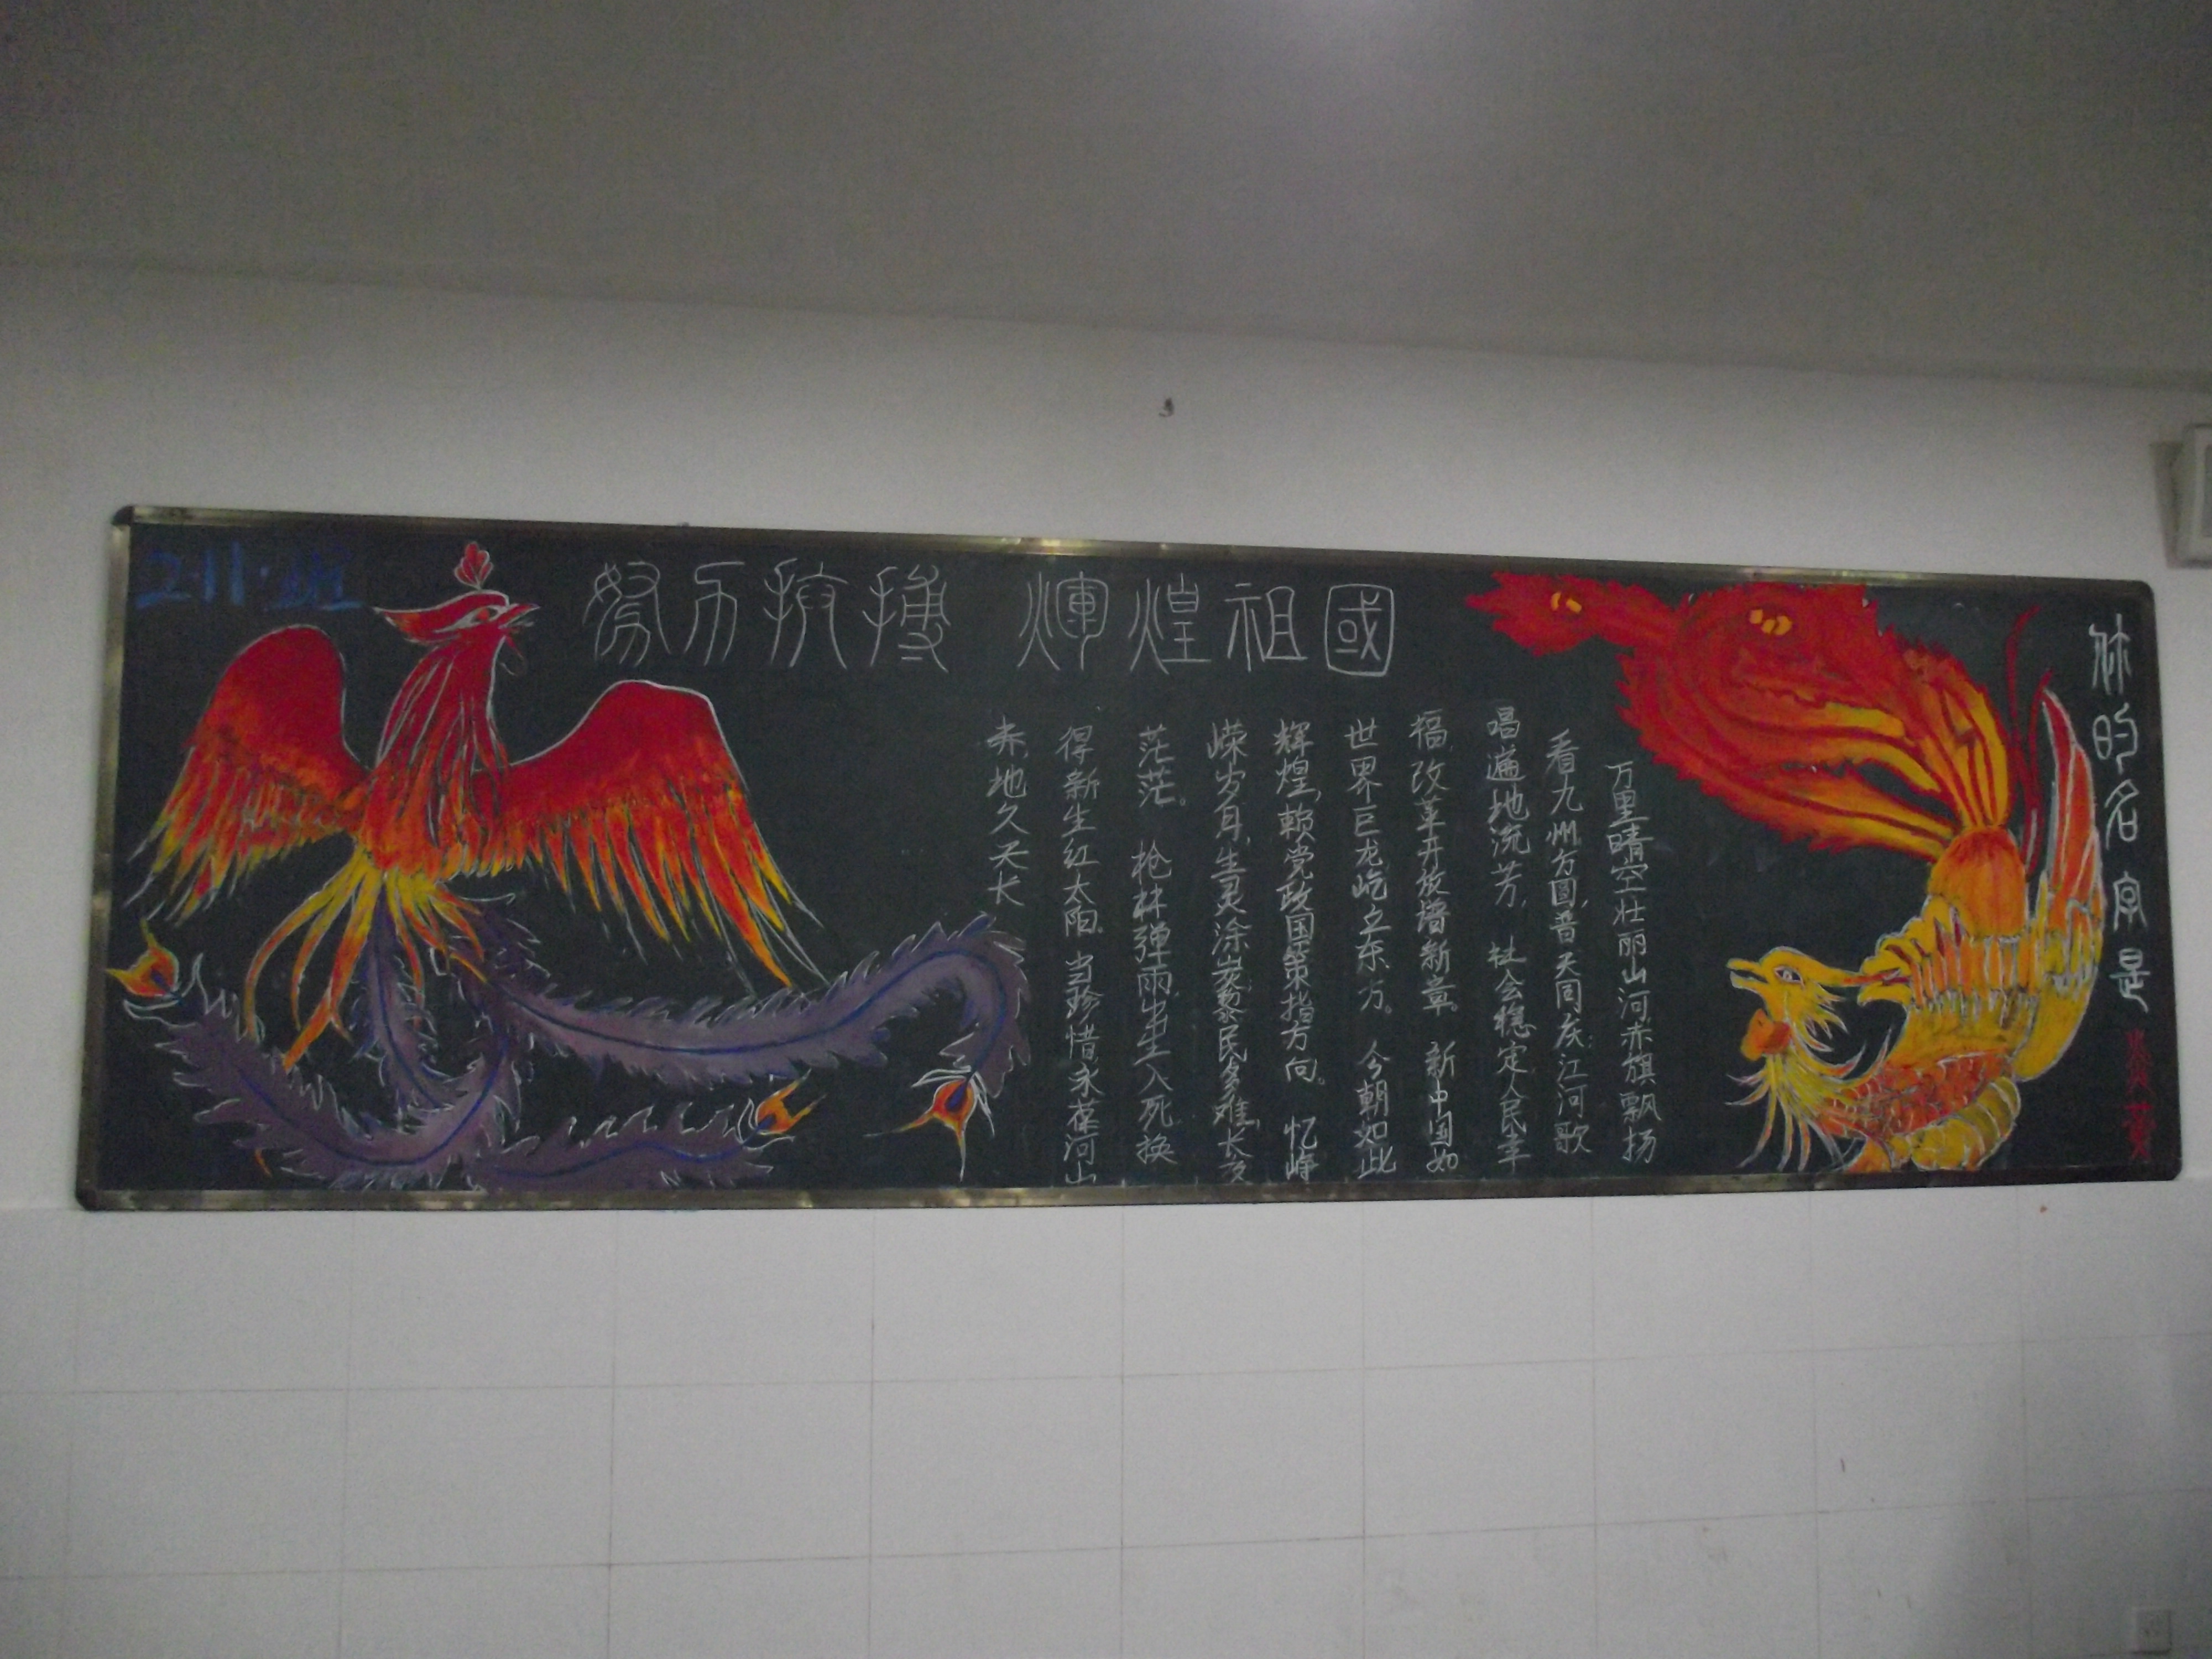 2.11.班
努力抗搏 辉煌祖國
你的名字是
炎黄
万里晴空壮丽山河赤旗飘扬
看九州方圆,普天同庆;江河歌
唱遍地流芳, 社会稳定,人民幸
福,改革开放谱新章。 新中国如
世界巨龙屹立东方。 今朝如此
辉煌,赖党政国策指方向。 忆峥
嵘岁月,生灵涂炭黎民多难,长夜
茫茫。 枪林弹雨,出生入死,换
得新生红太阳。当珍惜,永葆河山
赤,地久天长